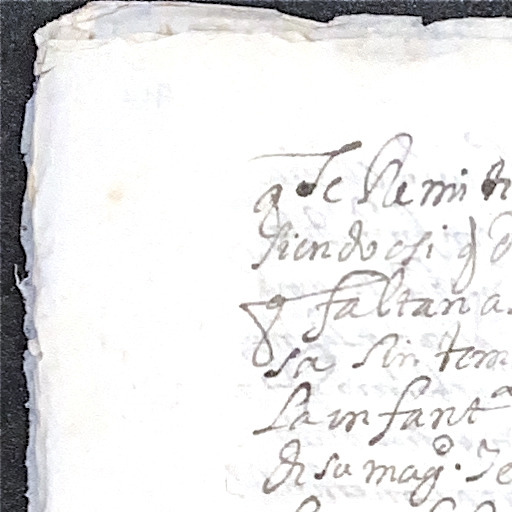 q se Remiti
siendo asi q
q faltan a
sa sin tem
La infantª
di su magᵒ. Je